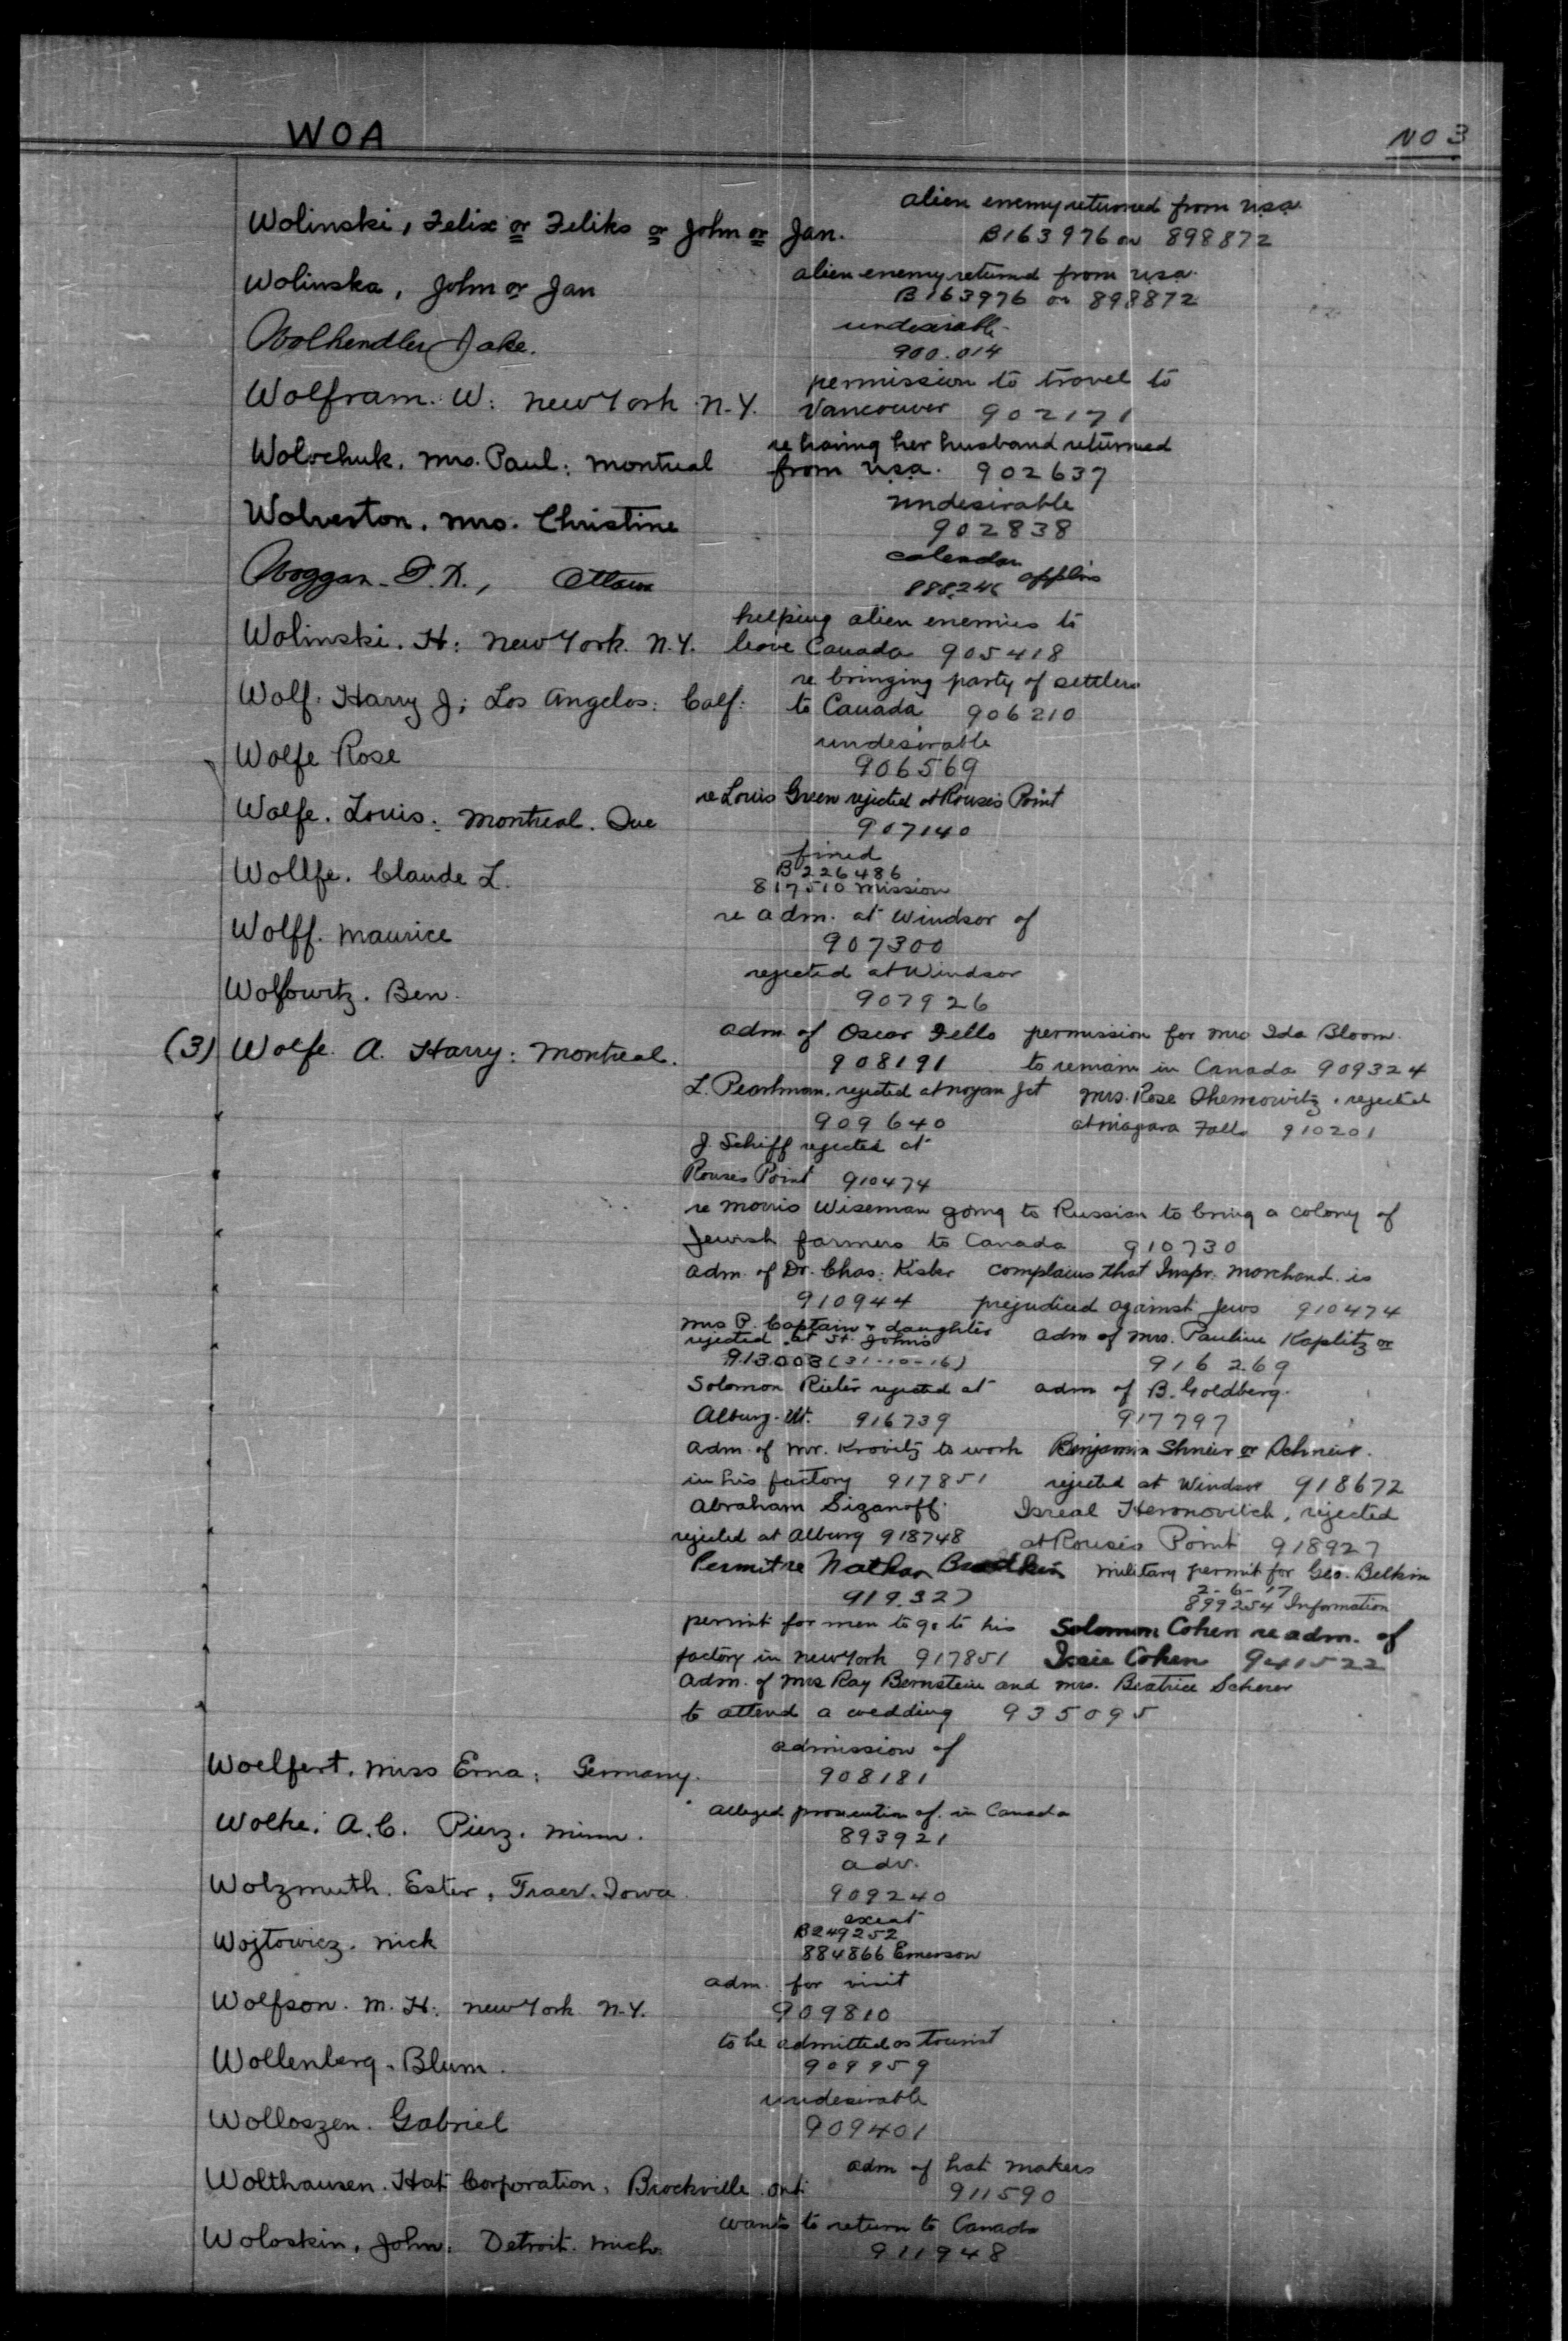 WOA
NO 3
alien enemy returned from U.S.A.
Wolinski, Felix or Feliks or John or Jan. B163976 or 898872
alien enemy returned from U.S.A.
Wolinska, John or Jan B163976 or 898872
undesirable
Wolhendler Jake. 900.014
permission to travel to
Wolfram. W: New York N.Y. Vancouver 902171
re having her husband returned
Wolochuk. Mrs. Paul: Montreal from U.S.A. 902637
undesirable
Wolverton. Mrs. Christine 902838
calendar
Woggan Ottawa 888246 applns
helping alien enemies to
Wolinski. H: New York. N.Y. leave Canada 905418
re bringing party of settlers
Wolf. Harry J; Los Angelos: Calf: to Canada 906210
undesirable
Wolfe Rose 906569
re Louis Green rejected at Rouses Point
Wolfe. Louis: Montreal. Que 907140
fined
B226486
Wollfe. Claude L. 817510 Mission
re adm. at Windsor of
Wolff. Maurice 907300
rejected at Windsor
Wolfowitz. Ben. 907926
adm. of Oscar Fells permission for Mrs Ida Bloom.
(3) Wolfe. A. Harry: Montreal. 908191 to remain in Canada 909324
L. Pearlman. rejected at Noyan Jct Mrs. Rose rejected
909640 at Niagara Falls 910201
J. Schiff rejected at
Rouses Point 910474
re Morris Wiseman going to Russian to bring a colony of
Jewish farmers to Canada 910730
adm. of Dr. Chas. Kisker complains that Inspr. Marchand is
910944 prejudiced against Jews 910474
Mrs P. Captain & daughter
rejected at St. Johns adm of Mrs. Pauline Kaplitz or
913003 (31-10-16) 916269
Solomon Rieter rejected at adm of B. Goldberg.
Alburg. Vt. 916739 917797
adm. of Mr. Krovitz to work Benjamin Shneir or Schneir.
in his factory 917851 rejected at Windsor 918672
Abraham Sizanoff. Isreal Heronovitch, rejected
rejected at Alburg 918748 at Rouses Point 918927
Permit re Nathan military permit for Geo. Belkin
919.327 2-6-17
899254 Information
permit for men to go to his Solomon Cohen re adm. of
factory in New York 917851 Issie Cohen 941522
adm. of Mrs Ray Bernstein and Mrs. Beatrice Scherer
to attend a wedding 935095
admission of
Woelfert. Miss Erna: Germany. 908181
alleged prosecution of. in Canada
Wolke. A.C. Pierz. Minn. 893921
adv.
Wolzmuth. Ester, Traer. Iowa. 909240
exeat
B249252
Wojtowicz. Nick 884866 Emerson
adm. for visit
Wolfson. M. H: New York N.Y. 909810
to be admitted as tourist
Wollenberg. Blum. 909959
undesirable
Wolloszen. Gabriel 909401
adm of hat makers
Wolthausen. Hat Corporation, Brockville. Ont: 911590
wants to return to Canada
Woloskin, John: Detroit. Mich. 911948